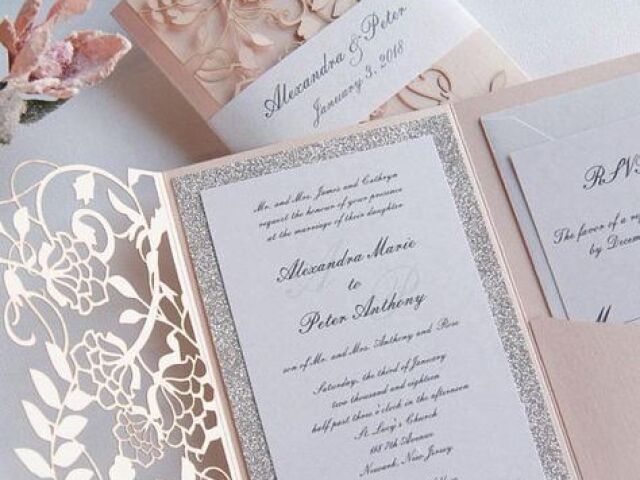 Alexandra & Peter
January 3, 2018
Mr. and Mrs. James and Cathryn
request the honour of your presence
at the marriage of their daughter
Alexandra Marie
to
Peter Anthony
son of Mr. and Mrs. Anthony and Rose
Saturday, the third of January
two thousand and eighteen
half past three o'clock in the afternoon
St. Lucy's Church
118 7th Avenue
Newark, New Jersey
RSV
The favor of a
by Decem
M